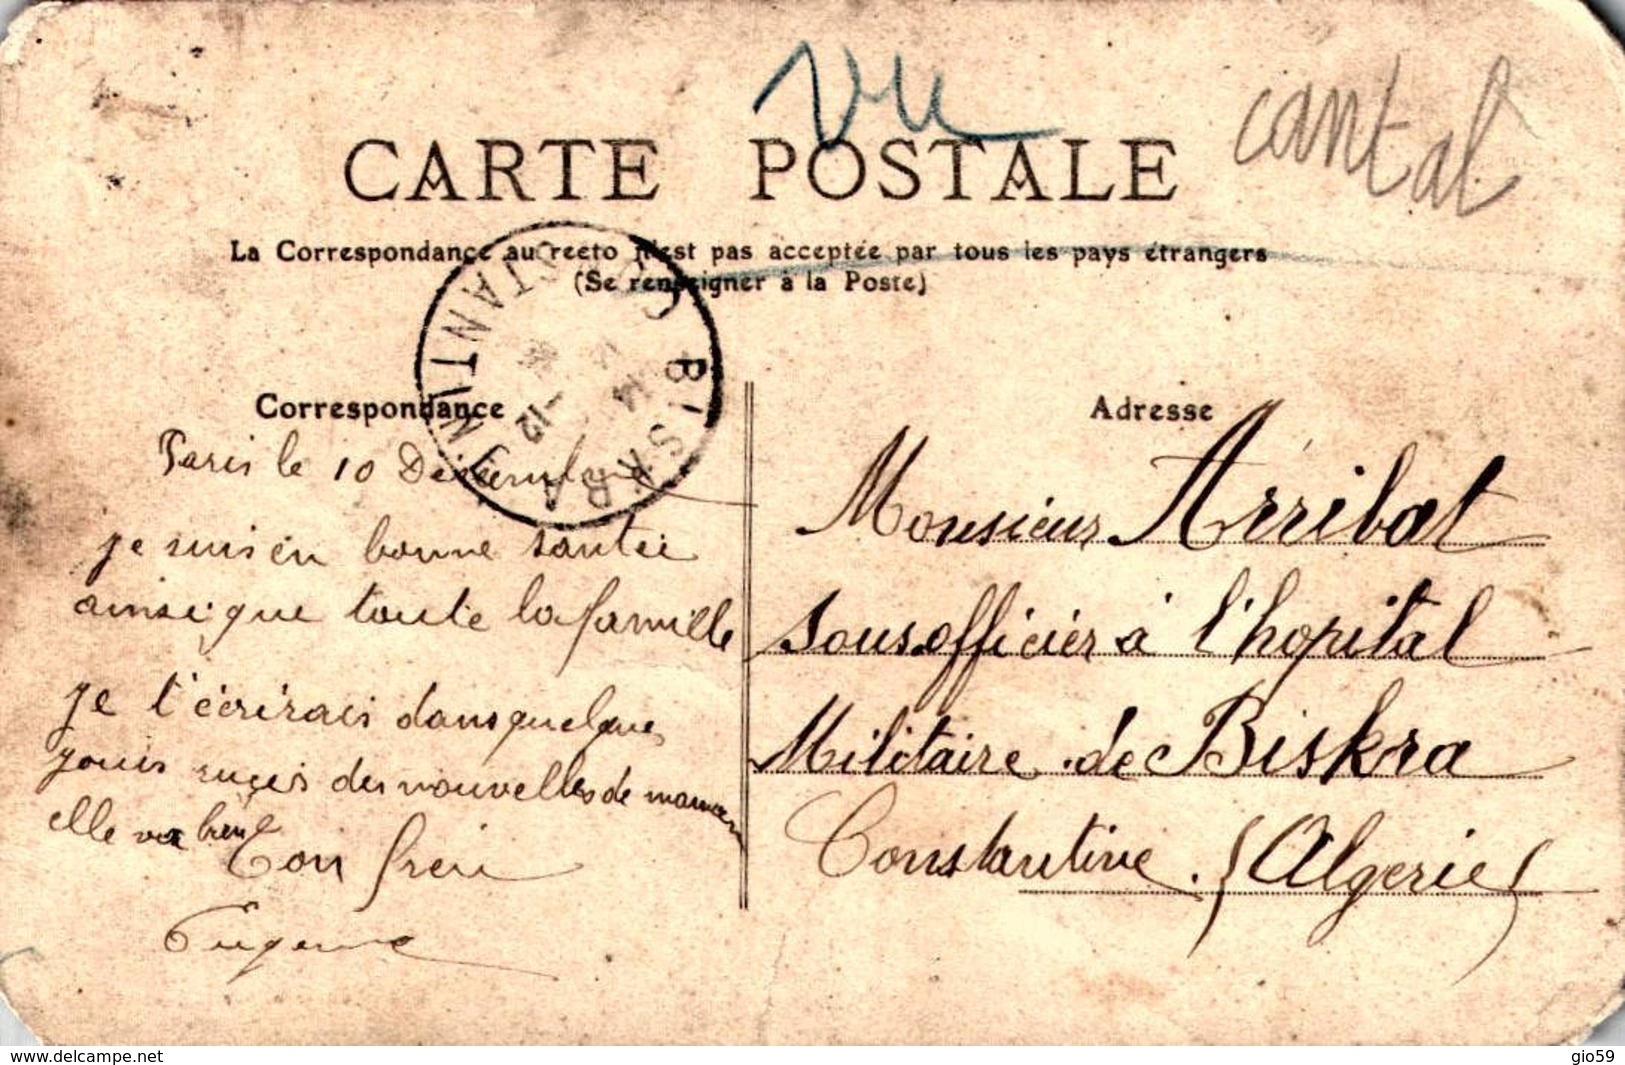 vu
cantal
CARTE POSTALE
La Correspondance au recto n'est pas acceptée par tous les pays étrangers
(Se renseigner à la Poste)
BISKRA
CONSTANTINE
14 -12
Correspondance
Paris le 10 Décembre
je suis en bonne santée
ainsi que toute la famille
je t'écrirais dans quelques
jours reçis des nouvelles de maman
elle va bien
Ton frère
Eugene
Adresse
Monsieur Arribat
Sous officier à l'hopital
Militaire de Biskra
Constantine. (Algerie)
www.delcampe.net
gio59